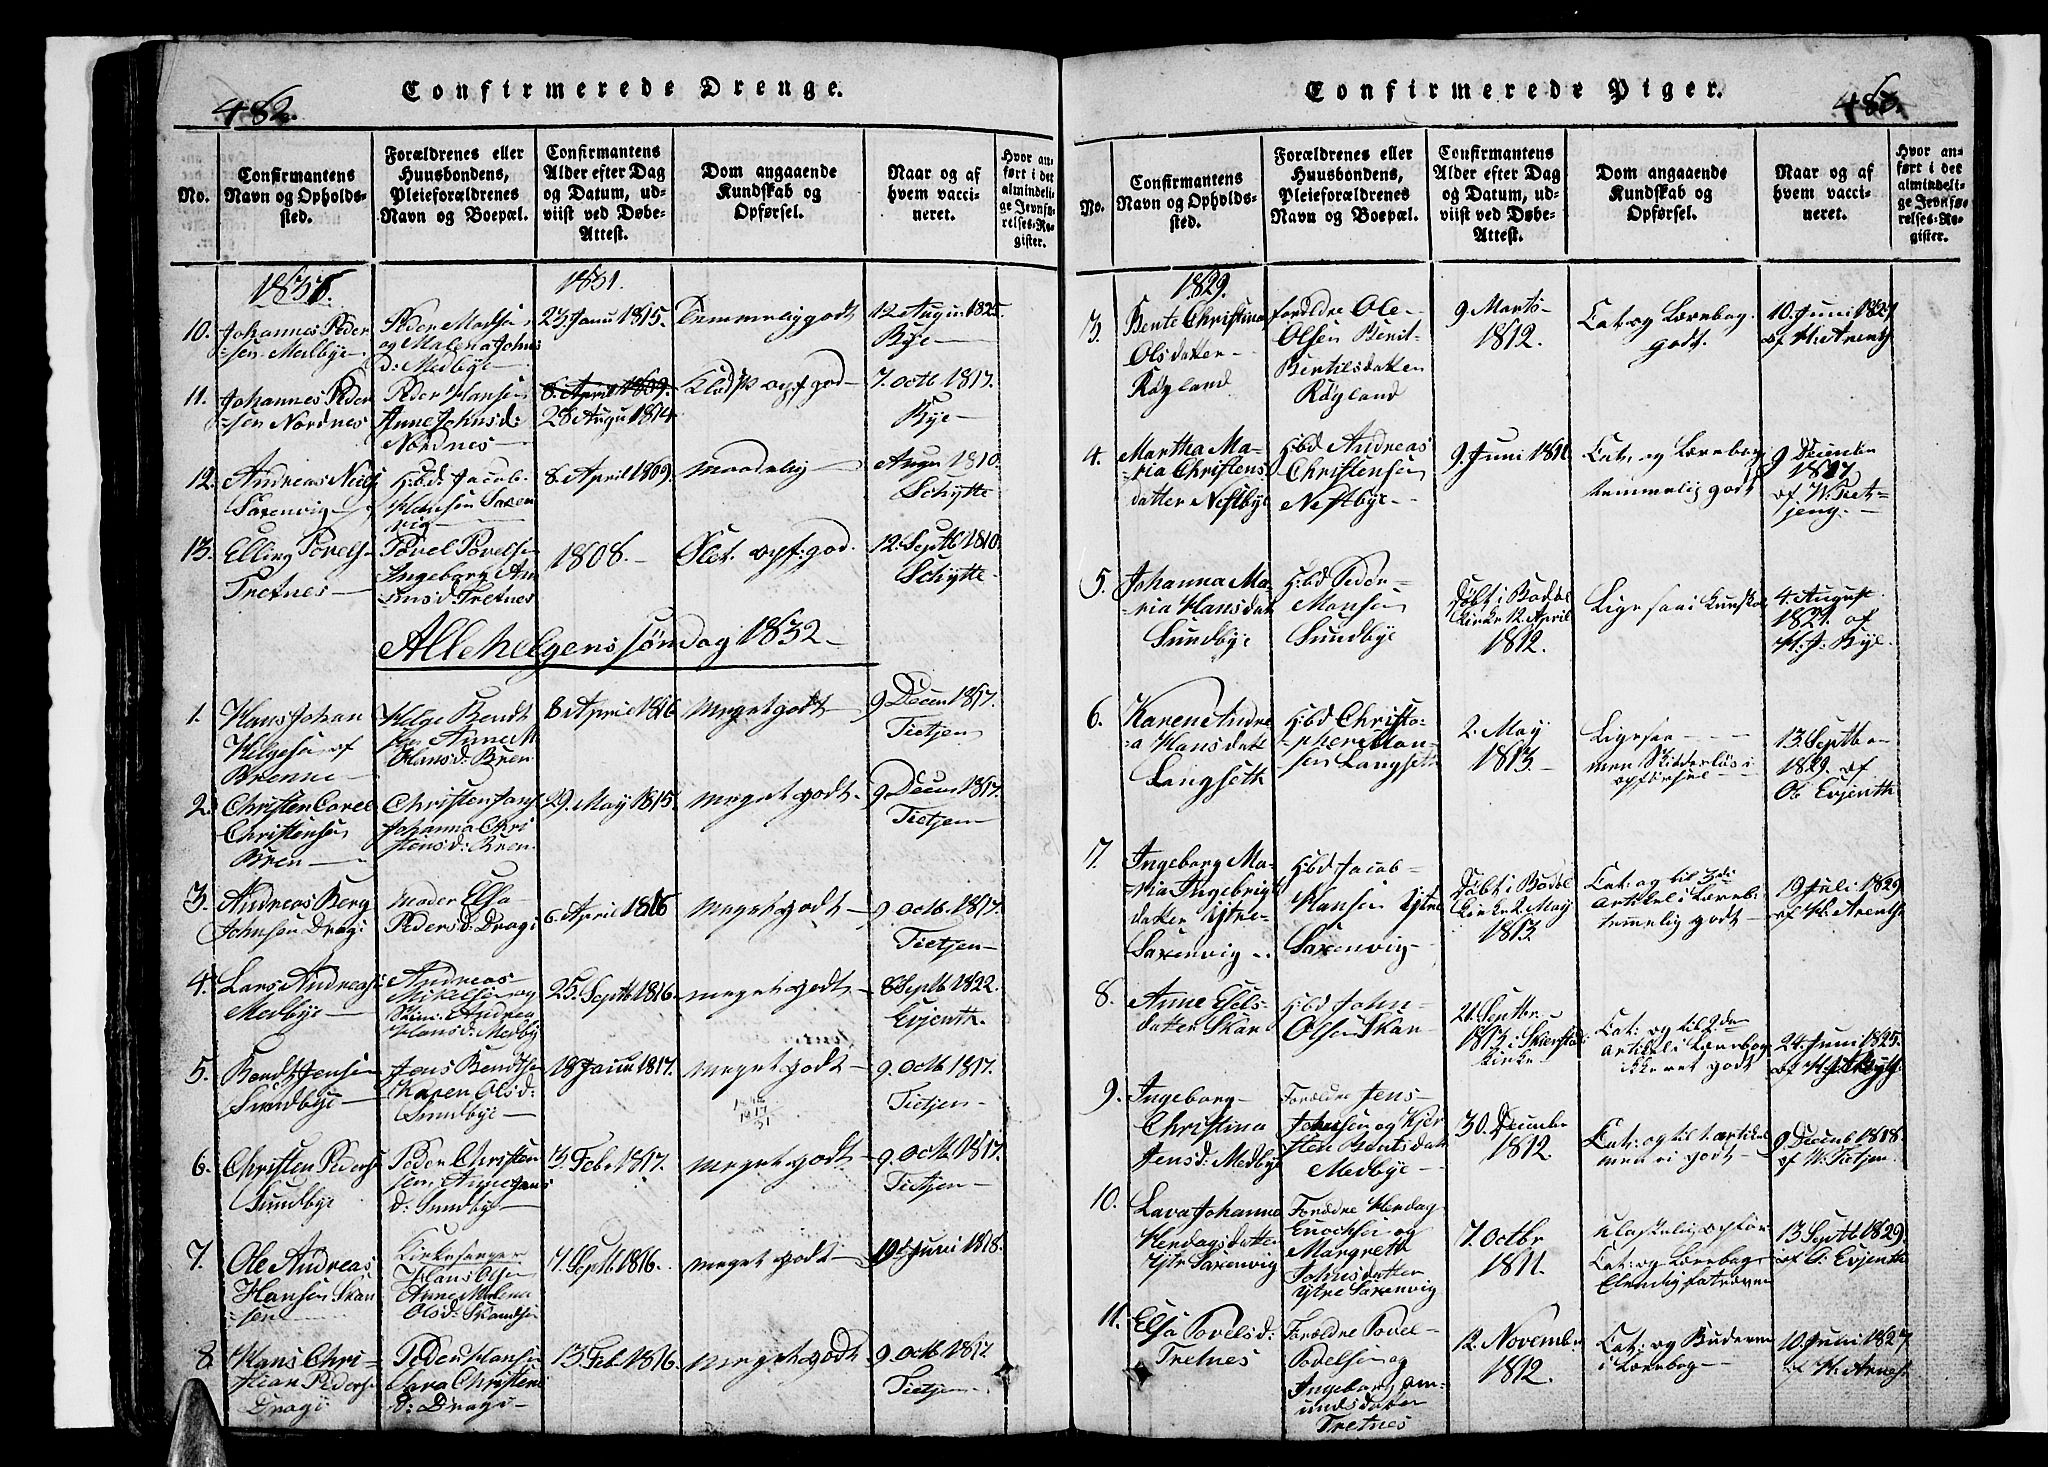 482.
Confirmerede Drenge.
No.
Confirmantens
Navn og Opholds-
sted.
Forældrenes eller
Huusbondens,
Pleieforældrenes
Navn og Boepæl.
Confirmantens
Alder efter Dag
og Datum, ud-
viist ved Døbe-
Attest.
Dom angaaende
Kundskab og
Opførsel.
Naar og af
hvem vacci-
neret.
Hvor an-
ført i det
almindeli-
ge Jevnfø-
relses-Re-
gister.
1831.
1831.
10.
Johannes Peder
-sen Medbye
Peder Madsen
og Malena Johns
d: Medbye
23 Janu 1815.
Temmelig godt
12 August 1825
Bye
11.
Johannes Peder
-sen Nordnes
Peder Hansen
Anne Johnsd:
Nordnes
8 April 1809.
28 Augu 1814
opf god
7. octb 1817.
Bye
12.
Andreas Niels
Saxenvig
Hbd: Jacob
Hansen Saxen
vig
8 April 1809
maadelig
Augu 1810
Schytte
13.
Elling Povels
Tretnes
Povel Povelsen
Ingeborg Am
unsd Tretnes
1808.
Slet. opf: god.
12. Septb 1810.
Schytte
Allehelgenssøndag 1832
1.
Hans Johan
Helgesen af
Brenne
Helge Bendt
sen Anne M
Hansd: Bren
8 April 1816
meget godt
9 Decem 1817.
Tietjen
2.
Christen Carel
Christensen
Bren
Christen Jans
Johanna Chri
stensd: Bren
29. May 1815.
meget godt
9 Decem 1817.
Tietjen
3.
Andreas Berg
Johnsen Dragi
moder Elsa
Pedersd: Dragi
6 April 1816
meget godt
9 octb. 1817.
Tietjen
4.
Lars Andreas
Medbye
Andreas
Mikelsen og
Andrea
Hansd: Medby
25. Septb 1816
meget godt
8 Septb 1822.
Evjenth.
5.
Bendt Jensen
Sundbye
Jens Bendtsen
Karen Olsd:
Sundbye
18 Janu 1817.
meget godt
9. octb 1817.
Tietjen
6.
Christen Peders
Sundbye
Peder Christen
sen, Anne Hans
d: Sundbye
3 Febr 1817.
meget godt
9. octb. 1817.
Tietjen
7.
Ole Andreas
Hansen Skan
sen
Kirkesanger
Hans Olsen
Anne Malena
Olsd: Skandsen
7 Septb 1816.
meget godt
19 Juni 1818.
8.
Hans Chri-
stian Peders
Dragi
Peder Hansen
Lava Christens
d: Dragi
13 Feb 1816.
meget godt
9 octb 1817.
Tietjen
483.
Confirmerede Piger.
No.
Confirmantens
Navn og Opholds-
sted.
Forældrenes eller
Huusbondens,
Pleieforældrenes
Navn og Boepæl.
Confirmantens
Alder efter Dag
og Datum, ud-
viist ved Døbe-
Attest.
Dom angaaende
Kundskab og
Opførsel.
Naar og af
hvem vacci-
neret.
Hvor an-
ført i det
almindeli-
ge Jevnfø-
relses-Re-
gister.
1829.
3.
Bente Christina
Olsdatter
Røgland
forældre Ole
Olsen Berit
Bertilsdatter
Røgland
9 Marts
1812.
Cat: og Lærebog
godt.
10. Juni 1827
af H. Arentz
4.
Martha Ma-
-ria Christens
datter Nestbye
Hbd Andreas
Christensen
Nestbye
9. Juni 1811
Cat: og Lærebog
temmelig godt
9 Decembr
1817
af W. Tiet-
jeng.
5.
Johanna Ma-
-ria Hansdat
Sundbye
Hbd Peder
Monsen
Sundbye
Døbt i Bodøe
Kirke 12 April
1812.
Ligesaa i Kunskab
4 August
1821. af
H. J. Bye.
6.
Karen Andre
-a Hansdatt
Langseth
Hbd Christo-
-pher Mon-
sen Langseth
2. May
1813.
Ligesaa
men Skiødesløs i
opførsel
13. Septbr
1829. af
Ob Evjenth
7.
Ingeborg Ma-
-ria Ingebrigt
datter Ytre-
Saxenvig
Hbd Jacob
Hansen Ytre
Saxenvig
Døbt i Bodøe
Kirke 2 May
1813.
Cat: og til 3di
artikel i Læreb:
temmelig godt
19 Juli 1829
af H. Arentz
8.
Anne Eliels-
datter Skar
Hbd John
Olsen Skar
21. Septbr
1813 i Skierstad
Kirke
Cat: og til 2den
artikel i Lærebog
ikke ret godt
24. Juni 1825.
9.
Ingeborg
Christina
Jensd: Medbye
Forældre Jens
Johnsen og Kjer
sten Bentsdatt
Medbye
30. Decembr
1812.
Cat: og til 1. artikel
men ei godt
9 Decemb 1818.
af W. Tietjen
10.
Lava Johanna
Herdagsdatter
Ytre Saxenvig
Forældre Herdag
Enochsen og
Margreth
Johnsdatter
Ytre Saxenvig
7. Octbr
1811.
Cat: og Lærebog
13 Septb 1829.
af O. Evjenth
11.
Elsa Povelsd:
Tretnes
Forældre Povel
Povelsen og
Ingeborg am-
undsdatter
Tretnes
12. November
1812.
Cat: og Buderne
i Lærebog
10. Juni 1827
af H. Arentz